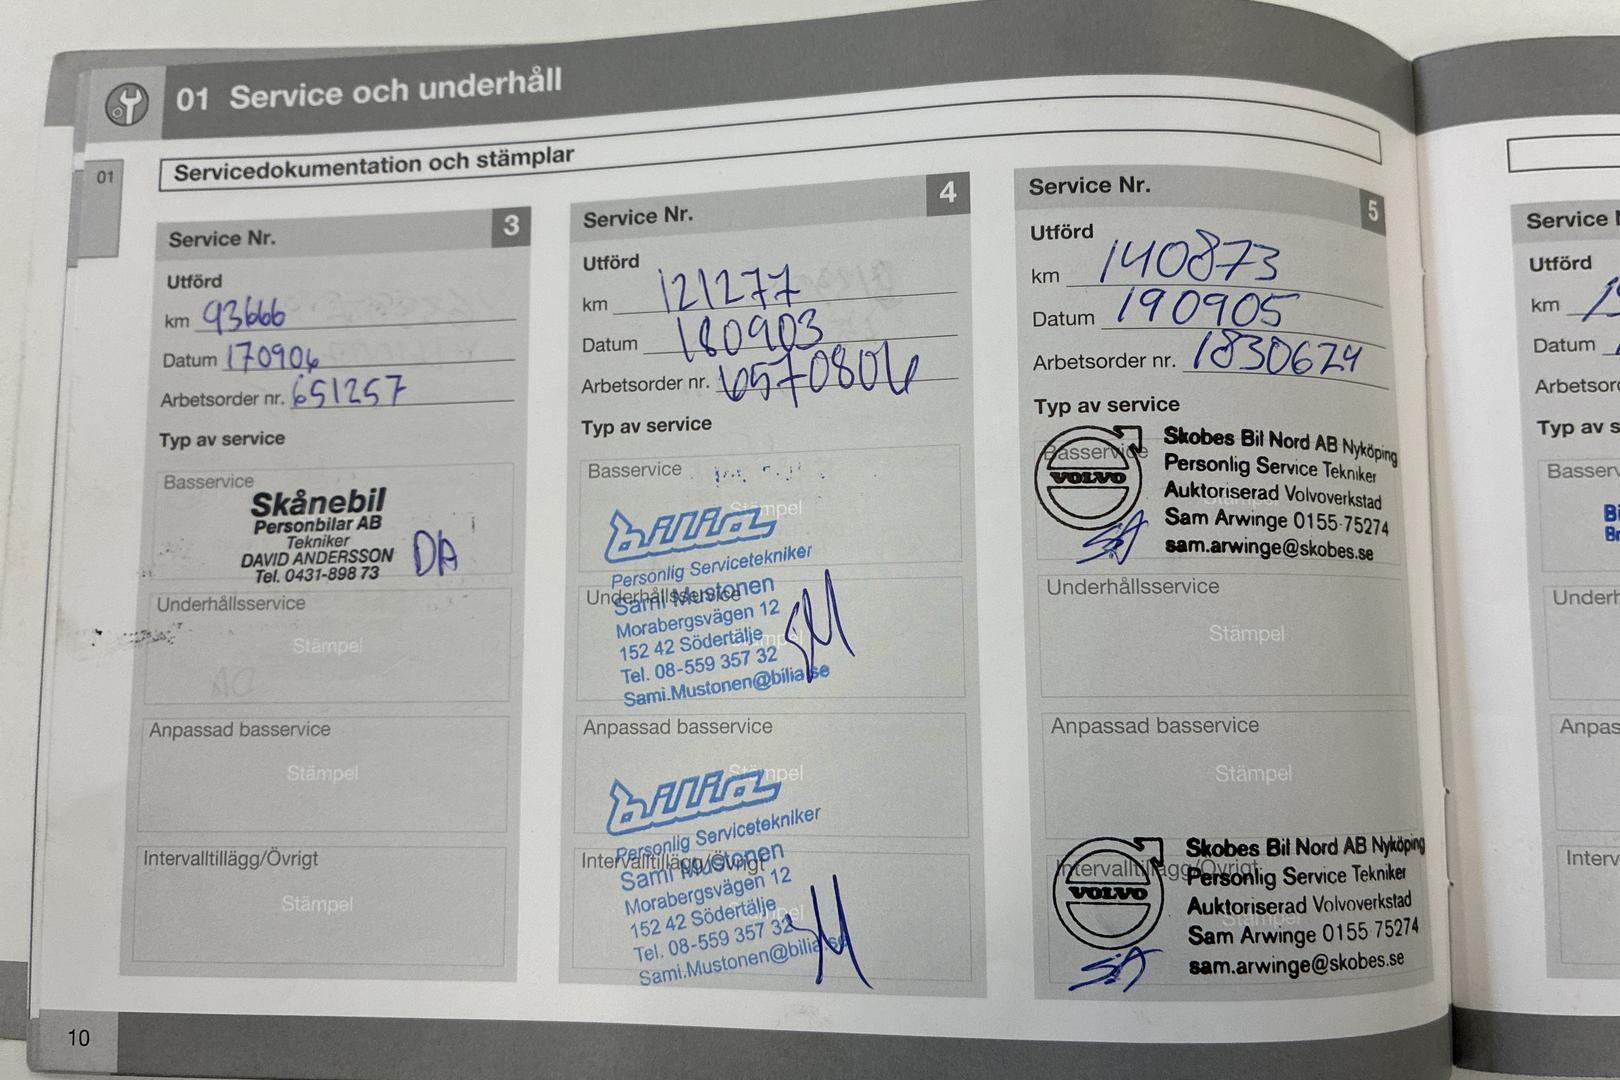 01 Service och underhåll
01
Servicedokumentation och stämplar
Service Nr. 3
Utförd
km 93666
Datum 170906
Arbetsorder nr. 651257
Typ av service
Basservice
Skånebil
Personbilar AB
Tekniker
DAVID ANDERSSON
Tel. 0431-898 73
DA
Underhållsservice
Stämpel
Anpassad basservice
Stämpel
Intervalltillägg/Övrigt
Stämpel
Service Nr. 4
Utförd
km 121277
Datum 180903
Arbetsorder nr. 6570806
Typ av service
Basservice
Stämpel
bilia
Personlig Servicetekniker
Underhållsservice
Sami Mustonen
Morabergsvägen 12
152 42 Södertälje
Tel. 08-559 357 32
Sami.Mustonen@bilia.se
SM
Anpassad basservice
Stämpel
bilia
Personlig Servicetekniker
Intervalltillägg/Övrigt
Sami Mustonen
Morabergsvägen 12
152 42 Södertälje
Tel. 08-559 357 32
Sami.Mustonen@bilia.se
Service Nr. 5
Utförd
km 140873
Datum 190905
Arbetsorder nr. 1830624
Typ av service
Basservice
VOLVO
Skobes Bil Nord AB Nyköping
Personlig Service Tekniker
Auktoriserad Volvoverkstad
Sam Arwinge 0155-75274
sam.arwinge@skobes.se
SA
Underhållsservice
Stämpel
Anpassad basservice
Stämpel
Intervalltillägg/Övrigt
Stämpel
VOLVO
Skobes Bil Nord AB Nyköping
Personlig Service Tekniker
Auktoriserad Volvoverkstad
Sam Arwinge 0155-75274
sam.arwinge@skobes.se
SA
10
Service
Utförd
km
Datum
Typ av s